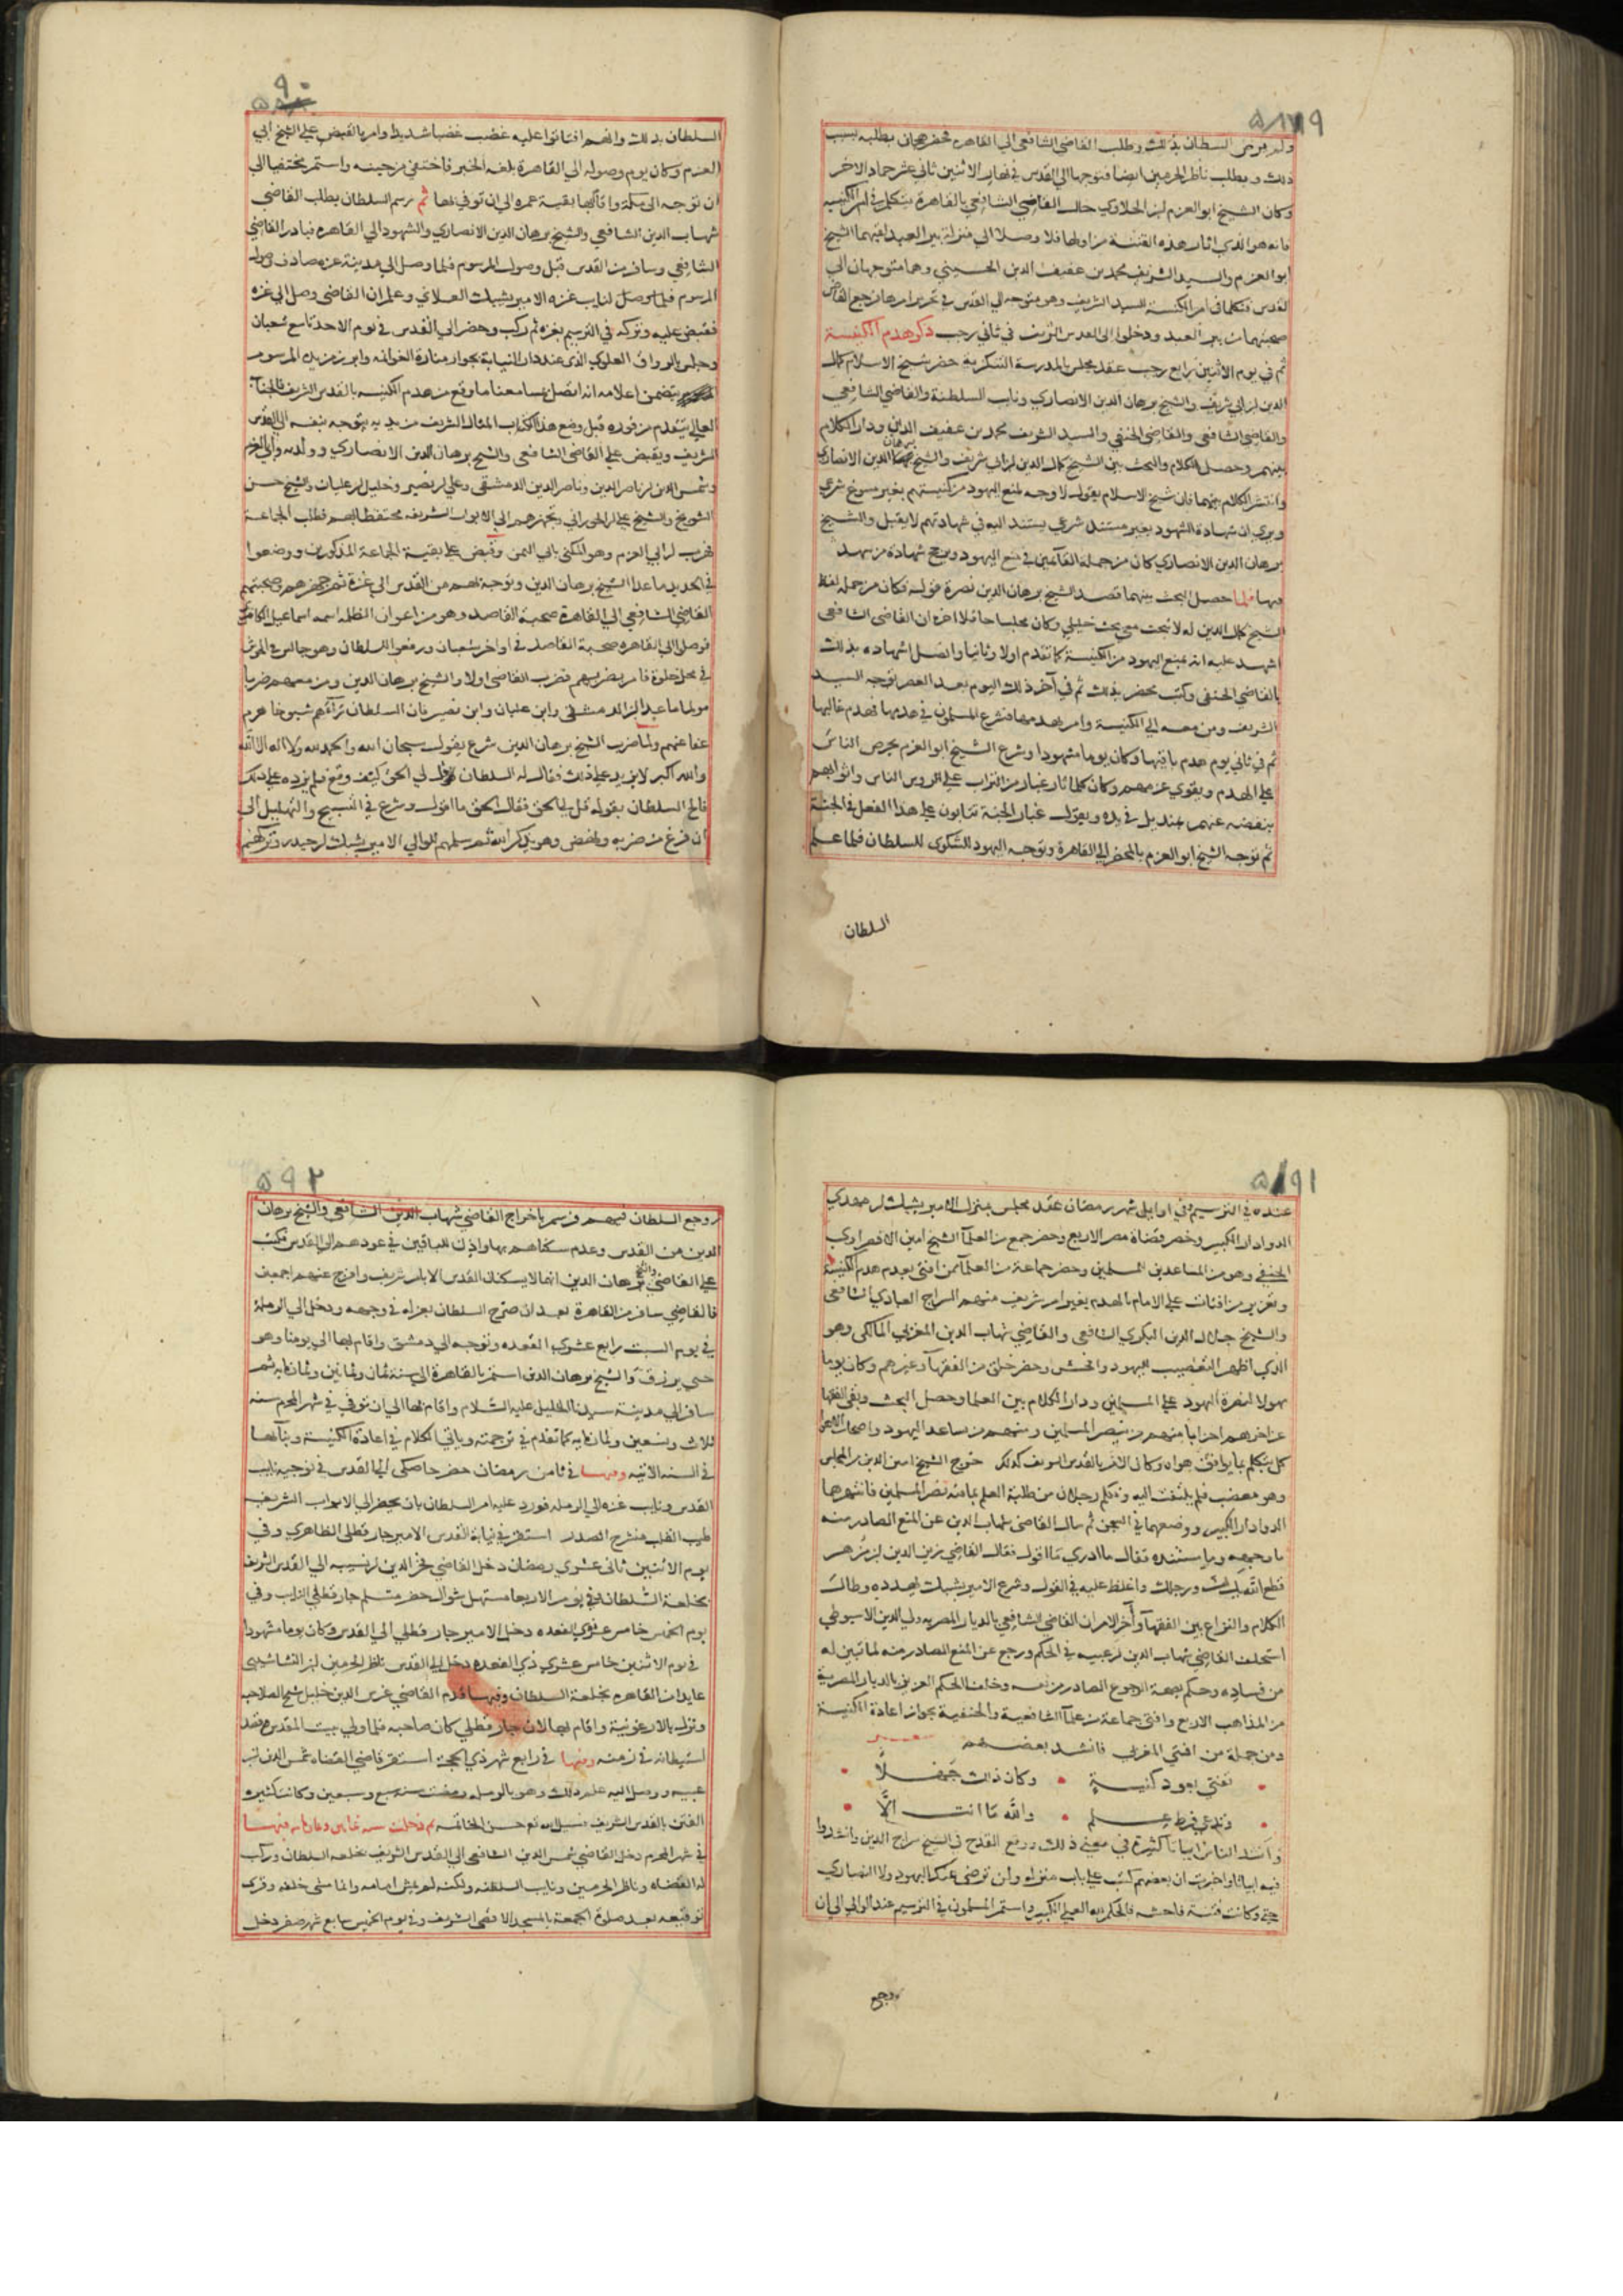 ٥٨٩
ولم يرض السلطان بذلك وطلب القاضي الشافعي الى القاهرة فحضر هجان بطلبه بسبب
ذلك وبطلب ناظر الحرمين ايضا فتوجها الى القدس في نهار الاثنين ثاني عشر جماد الاخر
وكان الشيخ ابو العزم ابن الحلاوي حال القاضي الشافعي بالقاهرة يتكلم في امر الكنيسة
فانه هو الذي اثار هذه الفتنة من اولها فلما وصلا الى منزلة بير العبد لقيهما الشيخ
ابو العزم والسيد الشريف محمد بن عفيف الدين الحسيني وهما متوجهان الى
القدس فتكلما في امر الكنيسة للسيد الشريف وهو متوجه الى القدس في رجع القاضي
صحبتهما من بير العبد ودخلوا الى القدس الشريف في ثاني رجب ذكر هدم الكنيسة
ثم في يوم الاثنين رابع رجب عقد مجلس بالمدرسة التنكزية حضر شيخ الاسلام كمال
الدين ابن ابي شريف والشيخ برهان الدين الانصاري ونايب السلطنة والقاضي الشافعي
والقاضي الحنفي والسيد الشريف محمد بن عفيف الدين ودار الكلام
بينهم وحصل الكلام والبحث بين الشيخ كمال الدين ابن ابي شريف والشيخ برهان الدين الانصاري
وانتشر الكلام بينهما فان شيخ الاسلام يقول لا وجه لمنع اليهود من كنيستهم بغير مسوغ شرعي
ويرى ان شهادة الشهود بغير مستند شرعي يستند اليه في شهادتهم لا يقبل والشيخ
برهان الدين الانصاري كان من جملة القائمين في منع اليهود ويرجح شهادة من شهد
فيها فلما حصل البحث بينهما قصد الشيخ برهان الدين نصرة قوله فكان من جملة لفظ
الشيخ كمال الدين له لا تبحث معي بحث خليلي وكان مجلسا حافلا اخره ان القاضي الشافعي
اشهد عليه انه بمنع اليهود من الكنيسة كما تقدم اولا وثانيا واتصل اشهاده بذلك
بالقاضي الحنفي وكتب محضر بذلك ثم في آخر ذلك اليوم بعد العصر توجه السيد
الشريف ومن معه الى الكنيسة وامر بهدمها فشرع المسلمون في هدمها فهدم غالبها
ثم في ثاني يوم هدم باقيها وكان يوما مشهودا وشرع الشيخ ابو العزم يحرص الناس
على الهدم ويقوي عزمهم وكان كلما ثار غبار من التراب على الروس الناس واثوابهم
ينفضه عنهم بمنديل في يده ويقول غبار الجنة تثابون على هذا الفعل في الجنة
ثم توجه الشيخ ابو العزم بالمحضر الى القاهرة وتوجه اليهود للشكوى للسلطان فلما علم
السلطان
٩٠
السلطان بذلك وانهم افتاتوا عليه غضب غضبا شديدا وامر بالقبض على الشيخ ابي
العزم وكان يوم وصوله الى القاهرة بلغه الخبر فاختفى من حينه واستمر مختفيا الى
ان توجه الى مكة واقام بها بقية عمره الى ان توفي بها ثم رسم السلطان بطلب القاضي
شهاب الدين الشافعي والشيخ برهان الدين الانصاري والشهود الى القاهرة فبادر القاضي
الشافعي وسافر من القدس قبل وصول المرسوم فلما وصل الى مدينة غزه صادف وصول
المرسوم فلما وصل لنايب غزه الامير يشبك العلائي وعلم ان القاضي وصل الى غزه
فقبض عليه وتركه في الترسيم بغزه ثم ركب وحضر الى القدس في يوم الاحد تاسع شعبان
وجلس بالرواق العلوي الذي عند دار النيابة بجوار منارة الغوانمه وابرز من يده المرسوم
يتضمن اعلامه انه اتصل بمسامعنا ما وقع من هدم الكنيسه بالقدس الشريف فالجناب
العالي يتقدم من فوره قبل وضع هذا الكتاب المثال الشريف من يديه يتوجه بنفسه الى القدس
الشريف ويقبض على القاضي الشافعي والشيخ برهان الدين الانصاري وولده وابي العزم
وشمس الدين ابن ناصر الدين وناصر الدين الدمشقي وعلي ابن نصير وخليل ابن عليان والشيخ حسن
الشويخ والشيخ علي ابن الحوراني ويجهزهم الى الابواب الشريفه محتفظا بهم فطلب الجماعة
فهرب ابن ابي العزم وهو المكنى بابي اليمن وقبض على بقية الجماعة المذكورين ووضعوا
في الحديد ما عدا الشيخ برهان الدين وتوجه بهم من القدس الى غزة ثم جهزهم صحبتهم
القاضي الشافعي الى القاهرة صحبة القاصد وهو من اعوان الظلمه اسمه اسماعيل الكافر
فوصل الى القاهرة صحبة القاصد في اواخر شعبان ورفعوا للسلطان وهو جالس في الحوش
في محل خلوة فامر بضربهم فضرب القاضي اولا والشيخ برهان الدين ومن معهم ضربا
مولما ما عدا الدمشقي وابن عليان وابن نصير فان السلطان رآهم شيوخا هرم
عفا عنهم ولما ضرب الشيخ برهان الدين شرع يقول سبحان الله والحمد لله ولا اله الا الله
والله اكبر لا يزيد على ذلك فقال له السلطان قل لي الحق كيف وقع فلم يزده على ذلك
فالح السلطان بقوله قل لي الحق فقال الحق ما اقول وشرع في التسبيح والتهليل الى
ان فرغ من ضربه ونهض وهو يذكر الله ثم سلمهم للوالي الامير يشبك ابن حيدر وتركهم
٥٩١
عنده في الترسيم ثم في اوايل شهر رمضان عقد مجلس بمنزل الامير يشبك ابن مهدي
الدوادار الكبير وحضر قضاة مصر الاربع وحضر جمع من العلمآ الشيخ امين الاقصراوي
الحنفي وهو من المساعدين للمسلمين وحضر جماعة من العلمآ ممن افتى بعدم هدم الكنيسة
وتعزير من افتات على الامام بالهدم بغير امر شريف منهم السراج العبادي الشافعي
والشيخ جلال الدين البكري الشافعي والقاضي شهاب الدين المغربي المالكي وهو
الذي اظهر التعصيب لليهود وافحش وحضر خلق من الفقهآ وغيرهم وكان يوما
مهولا لنصرة اليهود على المسلمين ودار الكلام بين العلما وحصل البحث وبقي الفقها
عن اخرهم احزابا منهم من ينصر المسلمين ومنهم من ساعد اليهود واصحاب
كل يتكلم بما يوافق هواه وكان الامر بالقدس الشريف كذلك خرج الشيخ امين الدين من المجلس
وهو مغضب فلم يلتفت اليه وتكلم رجلان من طلبة العلم بما فيه نصر المسلمين فانتهرهما
الدوادار الكبير ووضعهما في السجن ثم سال القاضي شهاب الدين عن المنع الصادر منه
ما وجهه وما مستنده فقال ما ادري ما اقول فقال القاضي زين الدين ابن مزهر
قطع الله يدك ورجلك واغلظ عليه في القول وشرع الامير يشبك يهدده وطال
الكلام والنزاع بين الفقهآ وآخر الامر ان القاضي الشافعي بالديار المصريه ولي الدين الاسيوطي
استخلف القاضي شهاب الدين ابن عبيه في الحكم ورجع عن المنع الصادر منه لما تبين له
من فساده وحكم بصحة الرجوع الصادر من نفسه وخلف الحكم العزيز بالديار المصرية
من المذاهب الاربع وافتى جماعة من علمآ الشافعية والحنفية بجواز اعادة الكنيسة
ومن جملة من افتى المغربي فانشد بعضهم شعر
تفتي بعود كنيسة وكان ذلك جهلا
وتدعي فرط علم والله ما انت الا
وانشد الناس ابياتا كثيرة في معنى ذلك ووقع القدح في الشيخ سراج الدين وانشدوا
فيه ابياتا واخبرت ان بعضهم كتب على باب منزله ولن ترضى عنك اليهود ولا النصارى
حتى وكانت فتنة فاحشه فالحكم لله العلي الكبير واستمر المسلمون في الترسيم عند الوالي الى ان
رجع
٥٩٢
روجع السلطان فيهم ورسم باخراج القاضي شهاب الدين الشافعي والشيخ برهان
الدين من القدس وعدم سكناهم بها واذن للباقين في عودهم الى القدس فكتب
على القاضي والشيخ برهان الدين انهما لا يسكنان القدس الا بامر شريف وافرج عنهم اجمعين
فالقاضي سافر من القاهرة بعد ان صرح السلطان بعزله في وجهه ودخل الى الرملة
في يوم السبت رابع عشري القعده وتوجه الى دمشق واقام بها الى يومنا وهو
حي يرزق والشيخ برهان الدين استمر بالقاهرة الى سنة ثمان وثمانين وثمانمايه ثم
سافر الى مدينة سيدنا الخليل عليه السلام واقام بها الى ان توفي في شهر المحرم سنة
ثلاث وتسعين وثمانمايه كما تقدم في ترجمته وياتي الكلام في اعادة الكنيسة وبنآئها
في السنه الاتيه ومنها في ثامن رمضان حضر خاصكي الى القدس في توجيه نايب
القدس ونايب غزه الى الرمله فورد عليه امر السلطان بان يحضر الى الابواب الشريفه
طيب القلب منشرح الصدر استقر في نيابة القدس الامير جار قطلي الظاهري وفي
يوم الاثنين ثاني عشري رمضان دخل القاضي فخر الدين ابن نسيبه الى القدس الشريف
بخلعة السلطان وفي يوم الاربعا مستهل شوال حضر متسلم جار قطلي النايب وفي
يوم الخميس خامس عشري القعده دخل الامير جار قطلي الى القدس وكان يوما مشهودا
في يوم الاثنين خامس عشري ذي القعده دخل الى القدس ناظر الحرمين ابن النشاشيبي
عايدا من القاهره بخلعة السلطان وفيها قدم القاضي غرس الدين خليل شيخ الصلاحيه
ونزل بالارغونية واقام بها لان جار قطلي كان صاحبه فلما ولي بيت المقدس قصد
استيطانه في زمنه ومنها في رابع شهر ذي الحجة استقر قاضي القضاه شمس الدين ابن
عبيه ووصل اليه علم ذلك وهو بالرمله ومضت سنة سبع وسبعين وكانت كثيرة
الفتن بالقدس الشريف فنسال الله تع حسن الخاتمه ثم دخلت سنه ثمانين وثمانمايه فيها
في شهر المحرم دخل القاضي شمس الدين الشافعي الى القدس الشريف بخلعة السلطان وركب
له القضاه وناظر الحرمين ونايب السلطنه ولكنه لم يمش امامه وانما مشى خلفه وقرى
توقيعه بعد صلوة الجمعة بالمسجد الاقصى الشريف وفي يوم الخميس سابع شهر صفر دخل